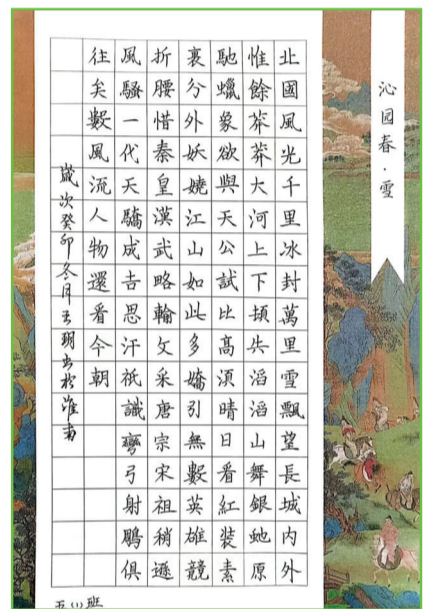 沁园春·雪
北國風光千里冰封萬里雪飄望長城内外
惟餘莽莽大河上下頓失滔滔山舞銀虵原
馳蠟象欲與天公試比高湏晴日看紅裝素
裹分外妖嬈江山如此多嬌引無數英雄競
折腰惜秦皇漢武略輸文采唐宗宋祖稍遜
風騷一代天驕成吉思汗祇識彎弓射鵰俱
往矣數風流人物還看今朝
歲次癸卯冬月王玥書於淮南
五(1)班